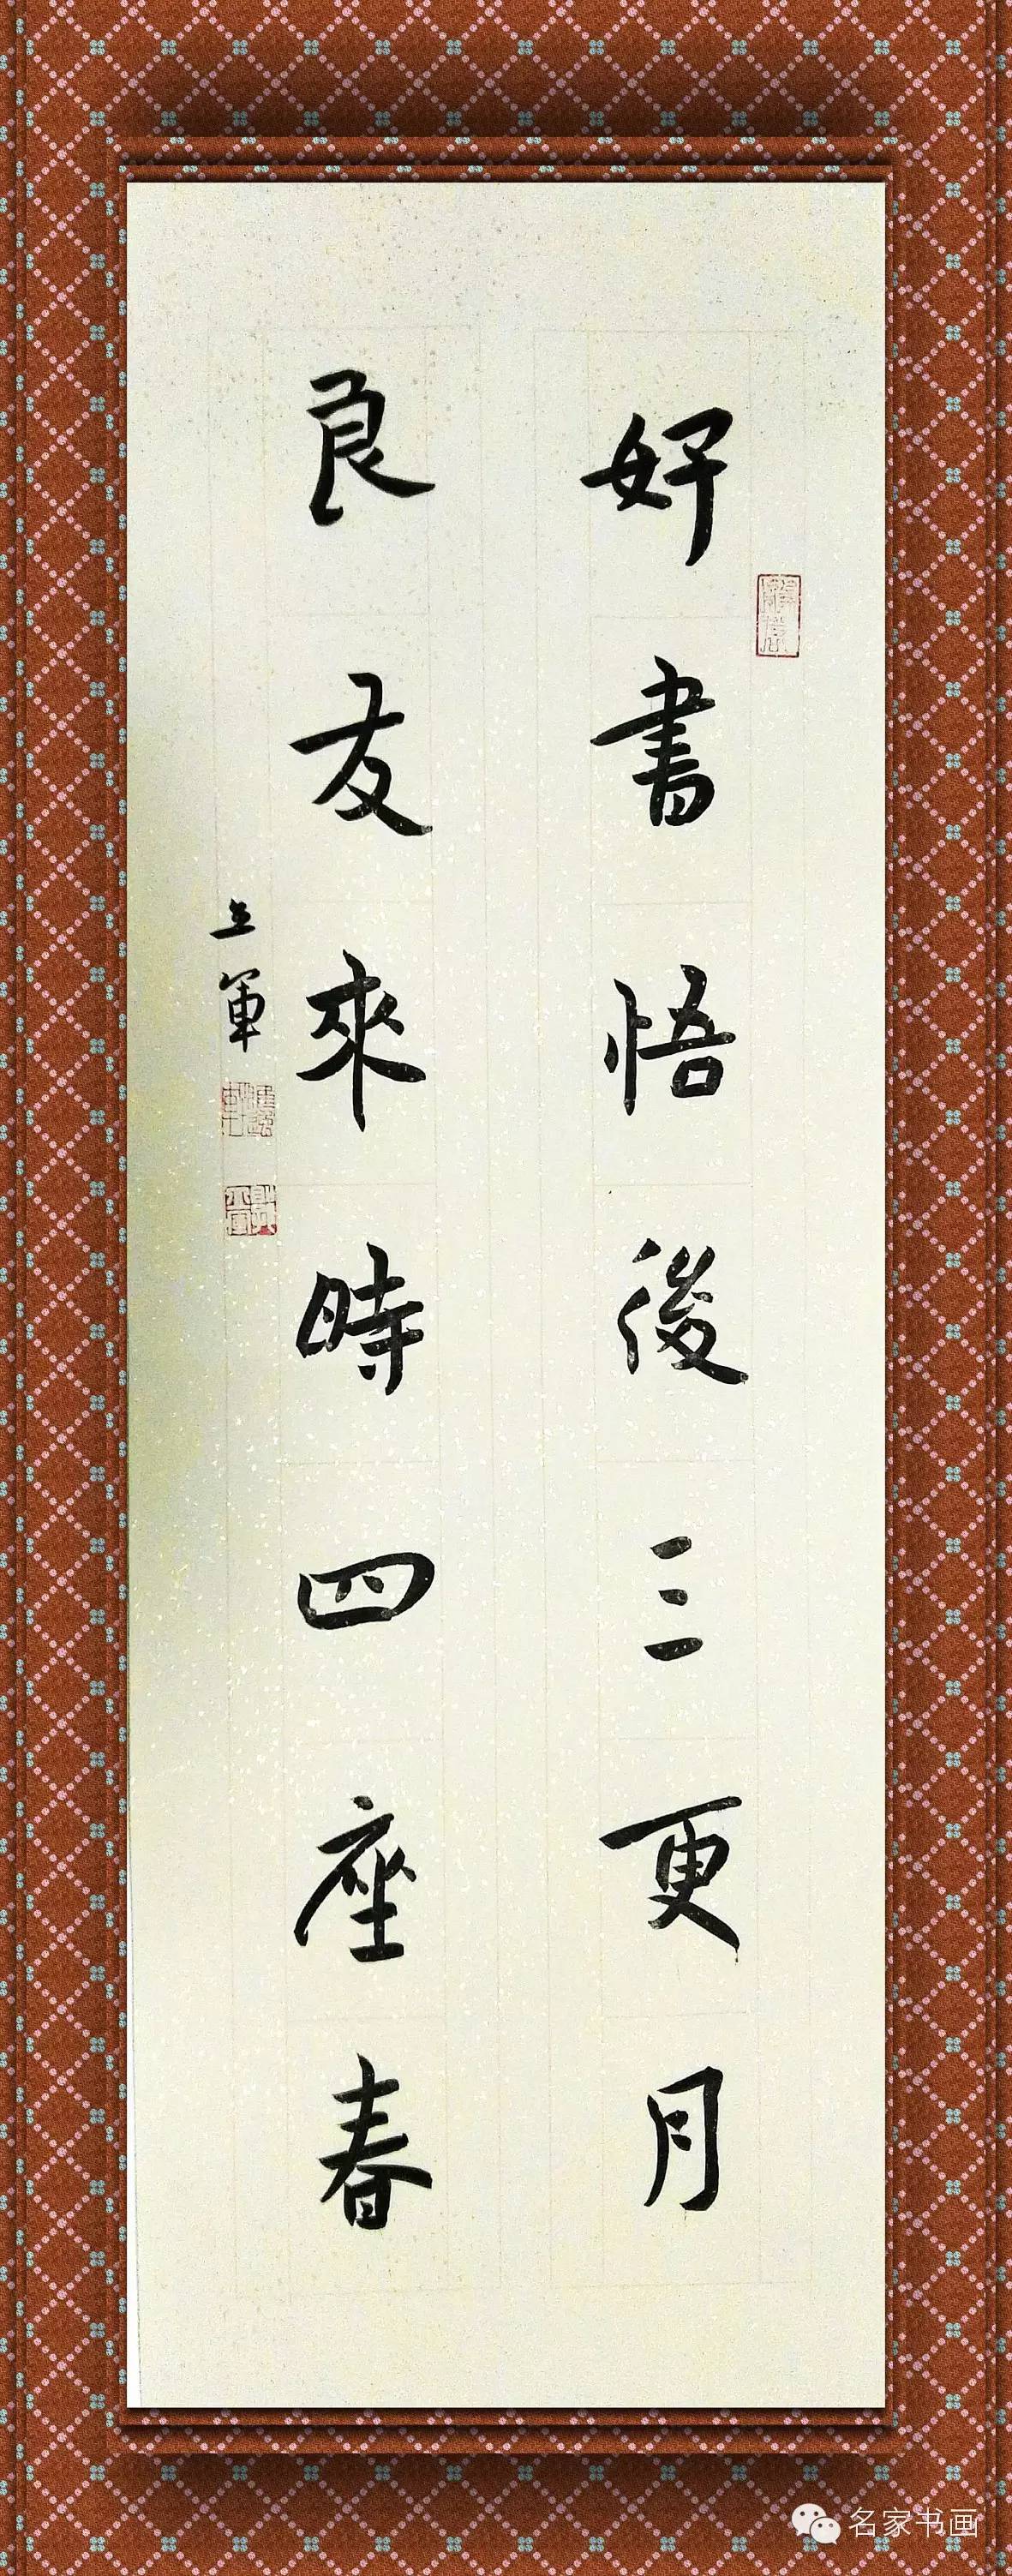 好書悟後三更月
良友來時四座春
立軍
名家书画